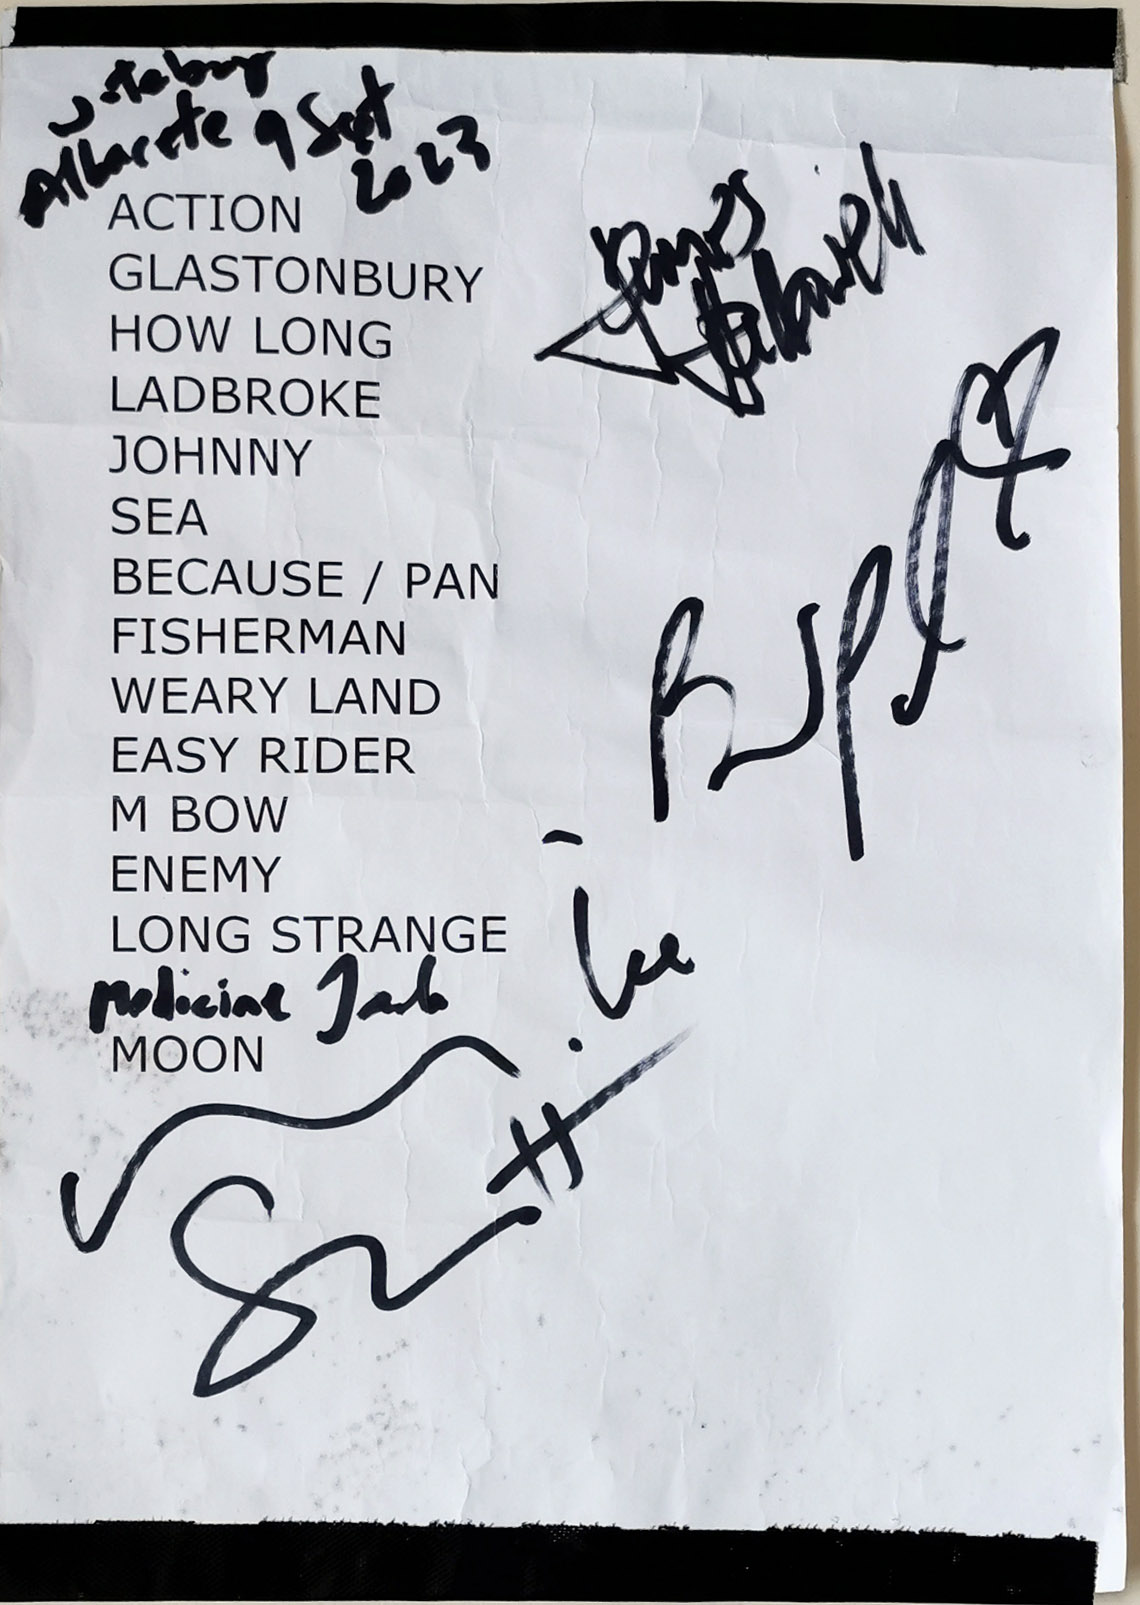 Albacete 9 Sept
2023
ACTION
GLASTONBURY
HOW LONG
LADBROKE
JOHNNY
SEA
BECAUSE / PAN
FISHERMAN
WEARY LAND
EASY RIDER
M BOW
ENEMY
LONG STRANGE
Medicine Jack
MOON
James
Hallawell